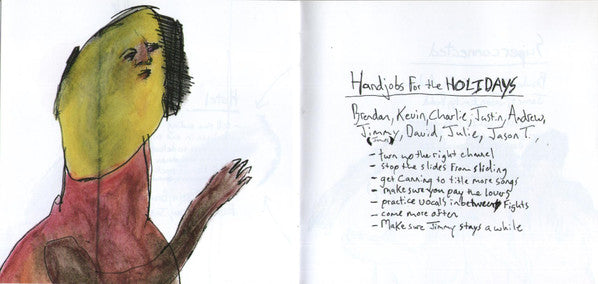 Handjobs For the HOLIDAYS
Brendan, Kevin, Charlie, Justin, Andrew,
Jimmy, David, Julie, Jason T.,
- turn up the right channel
- stop the slides from sliding
- get Canning to title more songs
- make sure you pay the lovers
- practice vocals inbetween fights
- come more often
- Make sure Jimmy stays a while
Superconnected